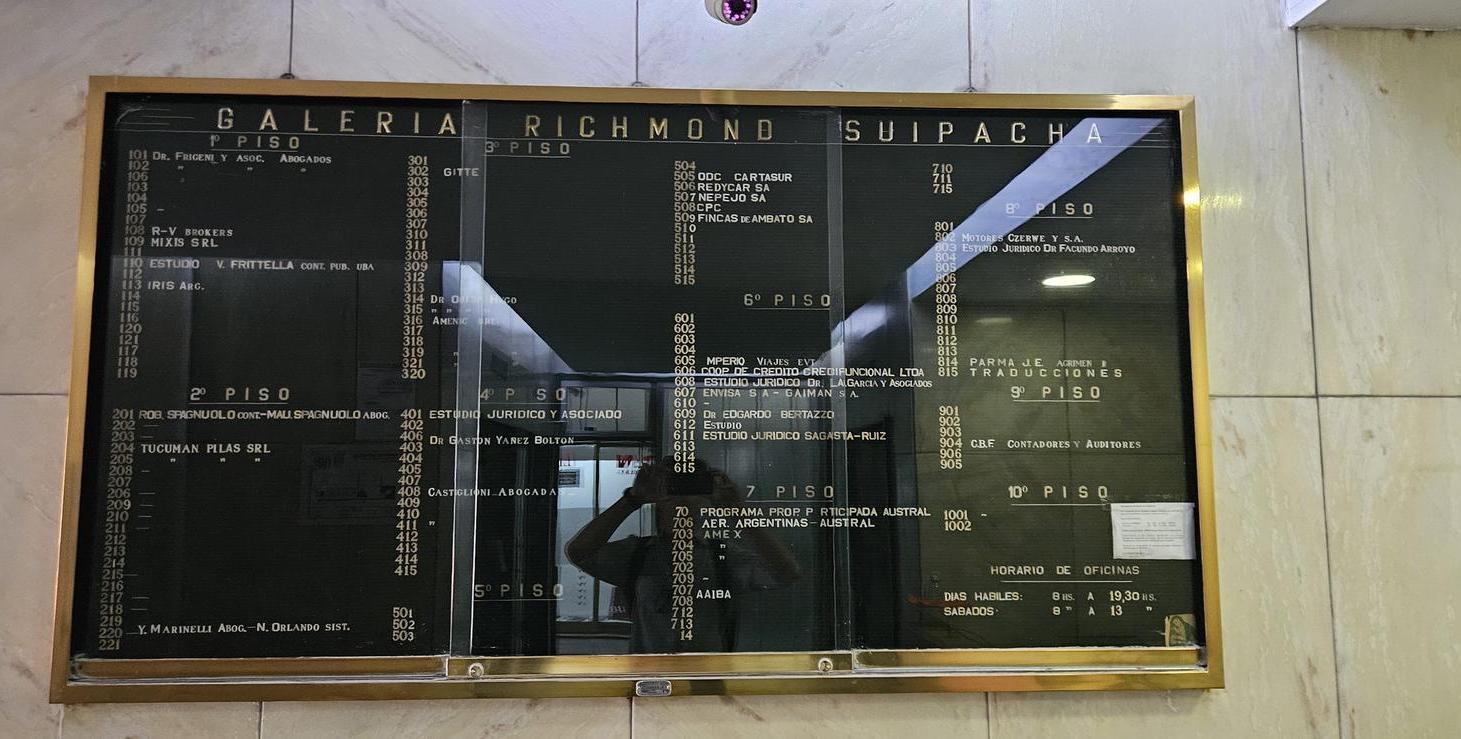 GALERIA RICHMOND SUIPACHA
1º PISO
101 DR. FRIGENI Y ASOC. ABOGADOS
102 " " "
106
103
104
105 -
107
108 R-V BROKERS
109 MIXIS SRL
111
110 ESTUDIO V. FRITTELLA CONT. PUB. UBA
112
113 IRIS ARG.
114
115
116
120
121
117
118
119
2º PISO
201 ROB. SPAGNUOLO CONT.-MAU.SPAGNUOLO ABOG.
202 —
203 —
204 TUCUMAN PILAS SRL
205 " " "
208 —
207
206 —
209 —
210 —
211 —
212
213
214
215 —
216
217 —
218
219
220 — Y. MARINELLI ABOG.—N. ORLANDO SIST.
221
3º PISO
301
302 GITTE
303
304
305
306
307
310
311
308
309
312
313
314 DR
315 " " " "
316
317
318
319 "
321 "
320
4º PISO
401 ESTUDIO JURIDICO Y ASOCIADO
402
406 DR GASTON YAÑEZ BOLTON
403
404
405
407
408 CASTIGLIONI ABOGADAS
409
410
411 "
412
413
414
415
5º PISO
501
502
503
504
505 ODC CARTASUR
506 REDYCAR SA
507 NEPEJO SA
508 CPC
509 FINCAS DE AMBATO SA
510
511
512
513
514
515
6º PISO
601
602
603
604
605 MPERIO VIAJES EVT
606 COOP DE CREDITO CREDIFUNCIONAL LTDA
608 ESTUDIO JURIDICO DR. L.A.GARCIA Y ASOGIADOS
607 ENVISA S A - GAIMAN S A.
610 -
609 DR EDGARDO BERTAZZO
612 ESTUDIO
611 ESTUDIO JURIDICO SAGASTA-RUIZ
613
614
615
7 PISO
70 PROGRAMA PROP. P RTICIPADA AUSTRAL
706 AER. ARGENTINAS-AUSTRAL
703 AMEX
704 "
705 "
702
709 -
707 AAIBA
708
712
713
14
710
711
715
8º PISO
801
802 MOTORES CZERWE Y S.A.
803 ESTUDIO JURIDICO DR FACUNDO ARROYO
804
805
806
807
808
809
810
811
812
813
814 PARMA J.E AGRIMEN R
815 TRADUCCIONES
9º PISO
901
902
903
904 C.B.F. CONTADORES Y AUDITORES
906
905
10º PISO
1001 -
1002
HORARIO DE OFICINAS
DIAS HABILES: 8 HS. A 19,30 HS.
SABADOS· 8 " A 13 "